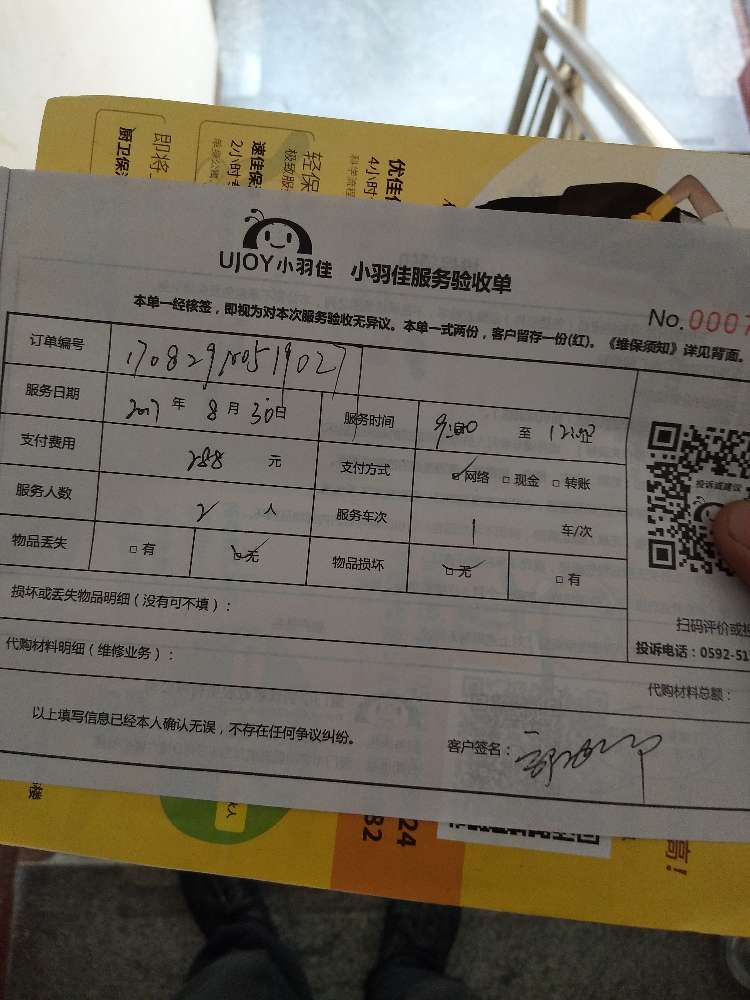 优佳保
4小时
科学流程
轻保
极致服
速佳保
2小时
即将
厨卫保
UJOY小羽佳 小羽佳服务验收单
No.0007
本单一经核签，即视为对本次服务验收无异议。本单一式两份，客户留存一份(红)。《维保须知》详见背面。
订单编号
服务日期 2017 年 8 月 30 日 服务时间 9:00 至 12:00
支付费用 288 元 支付方式 网络 现金 转账
服务人数 2 人 服务车次 1 车/次
物品丢失 有 无 物品损坏 无 有
投诉或建议
扫码评价或投
投诉电话：0592-51
损坏或丢失物品明细（没有可不填）：
代购材料明细（维修业务）：
代购材料总额：
以上填写信息已经本人确认无误，不存在任何争议纠纷。
客户签名：
24
82
高！